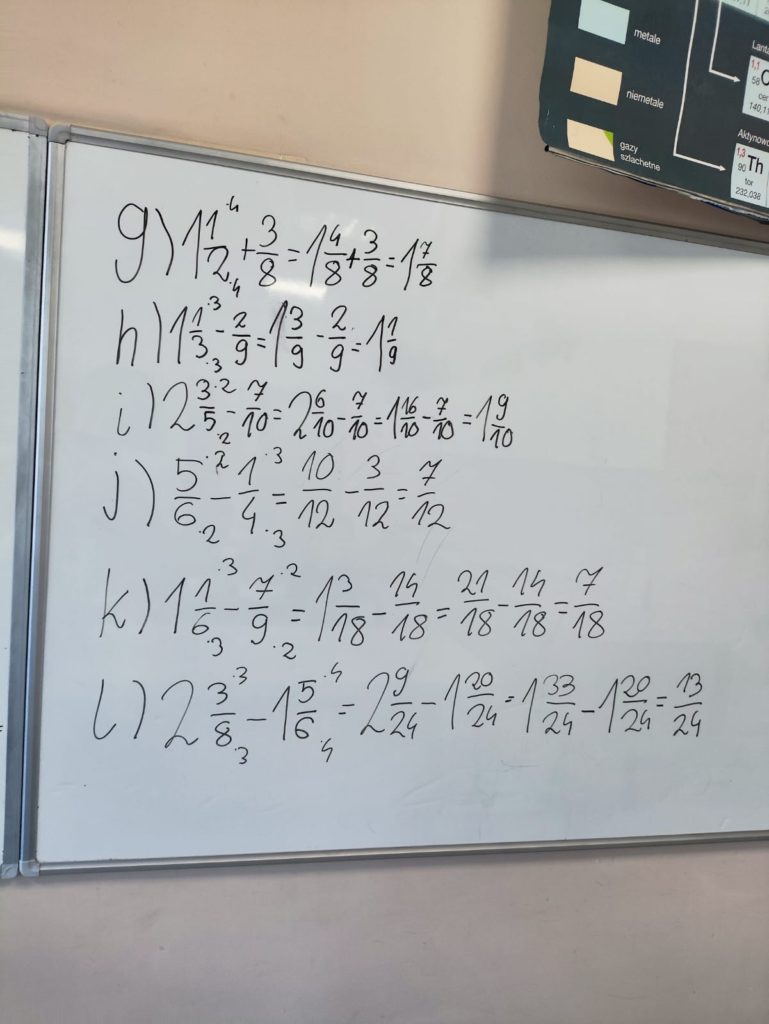 metale
niemetale
gazy
szlachetne
1,1
58
140,1
Aktynow
1,3
90 Th
tor
232,038
g) 1 1/2 ·4 ·4 + 3/8 = 1 4/8 + 3/8 = 1 7/8
h) 1 1/3 ·3 ·3 - 2/9 = 1 3/9 - 2/9 = 1 1/9
i) 2 3/5 ·2 ·2 - 7/10 = 2 6/10 - 7/10 = 1 16/10 - 7/10 = 1 9/10
j) 5/6 ·2 ·2 - 1/4 ·3 ·3 = 10/12 - 3/12 = 7/12
k) 1 1/6 ·3 ·3 - 7/9 ·2 ·2 = 1 3/18 - 14/18 = 21/18 - 14/18 = 7/18
l) 2 3/8 ·3 ·3 - 1 5/6 ·4 ·4 = 2 9/24 - 1 20/24 = 1 33/24 - 1 20/24 = 13/24